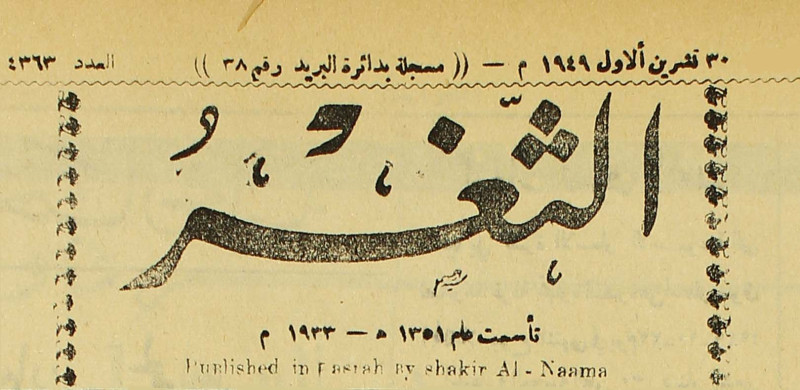 ٣٠ تشرين ألاول ١٩٤٩ م — (( مسجلة بدائرة البريد رقم ٣٨ )) العدد ٤٣٦٣
الثَّغْرُ
تأسست عام ١٣٥١ ه — ١٩٣٣ م
Published in Basrah By shakir Al - Naama